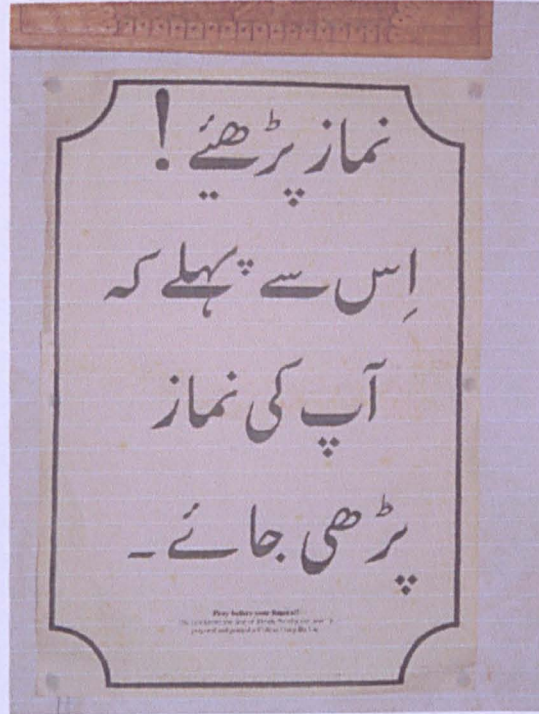 نماز پڑھئیے !
اِس سے پہلے کہ
آپ کی نماز
پڑھی جائے ۔
Pray before your funeral!